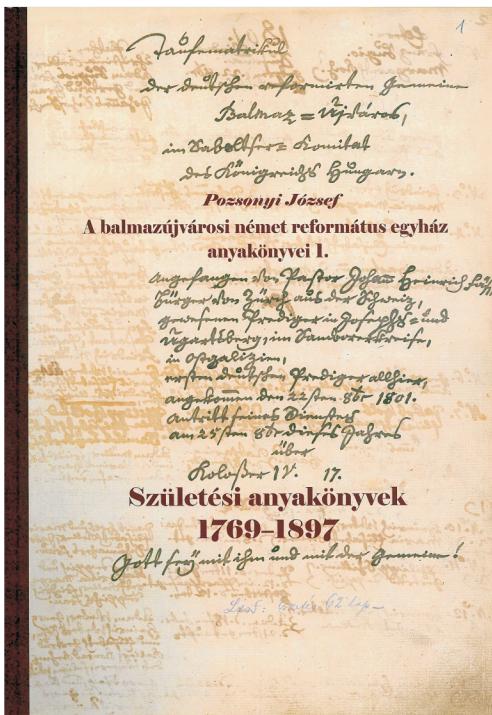 1
Taufematrikul
der deutschen reformirten Gemeine
Balmaz=Ujváros,
im Saboltser=Komitat
des Königreichs Hungarn.
Pozsonyi József
A balmazújvárosi német református egyház
anyakönyvei 1.
Angefangen von Pastor Johann Heinrich
Bürger von Zürch aus der Schweiz,
gewesenen Prediger in Josephs= und
Ugartsberg, im Samborerkreise,
in Ostgalizien,
ersten deutschen Prediger allhier,
angekommen den 22sten 8br 1801.
Antritt seines Dienstes
am 25sten 8br dieses Jahres
über
Koloßer IV. 17.
Születési anyakönyvek
1769–1897
Gott sey mit ihm und mit der Gemeine!